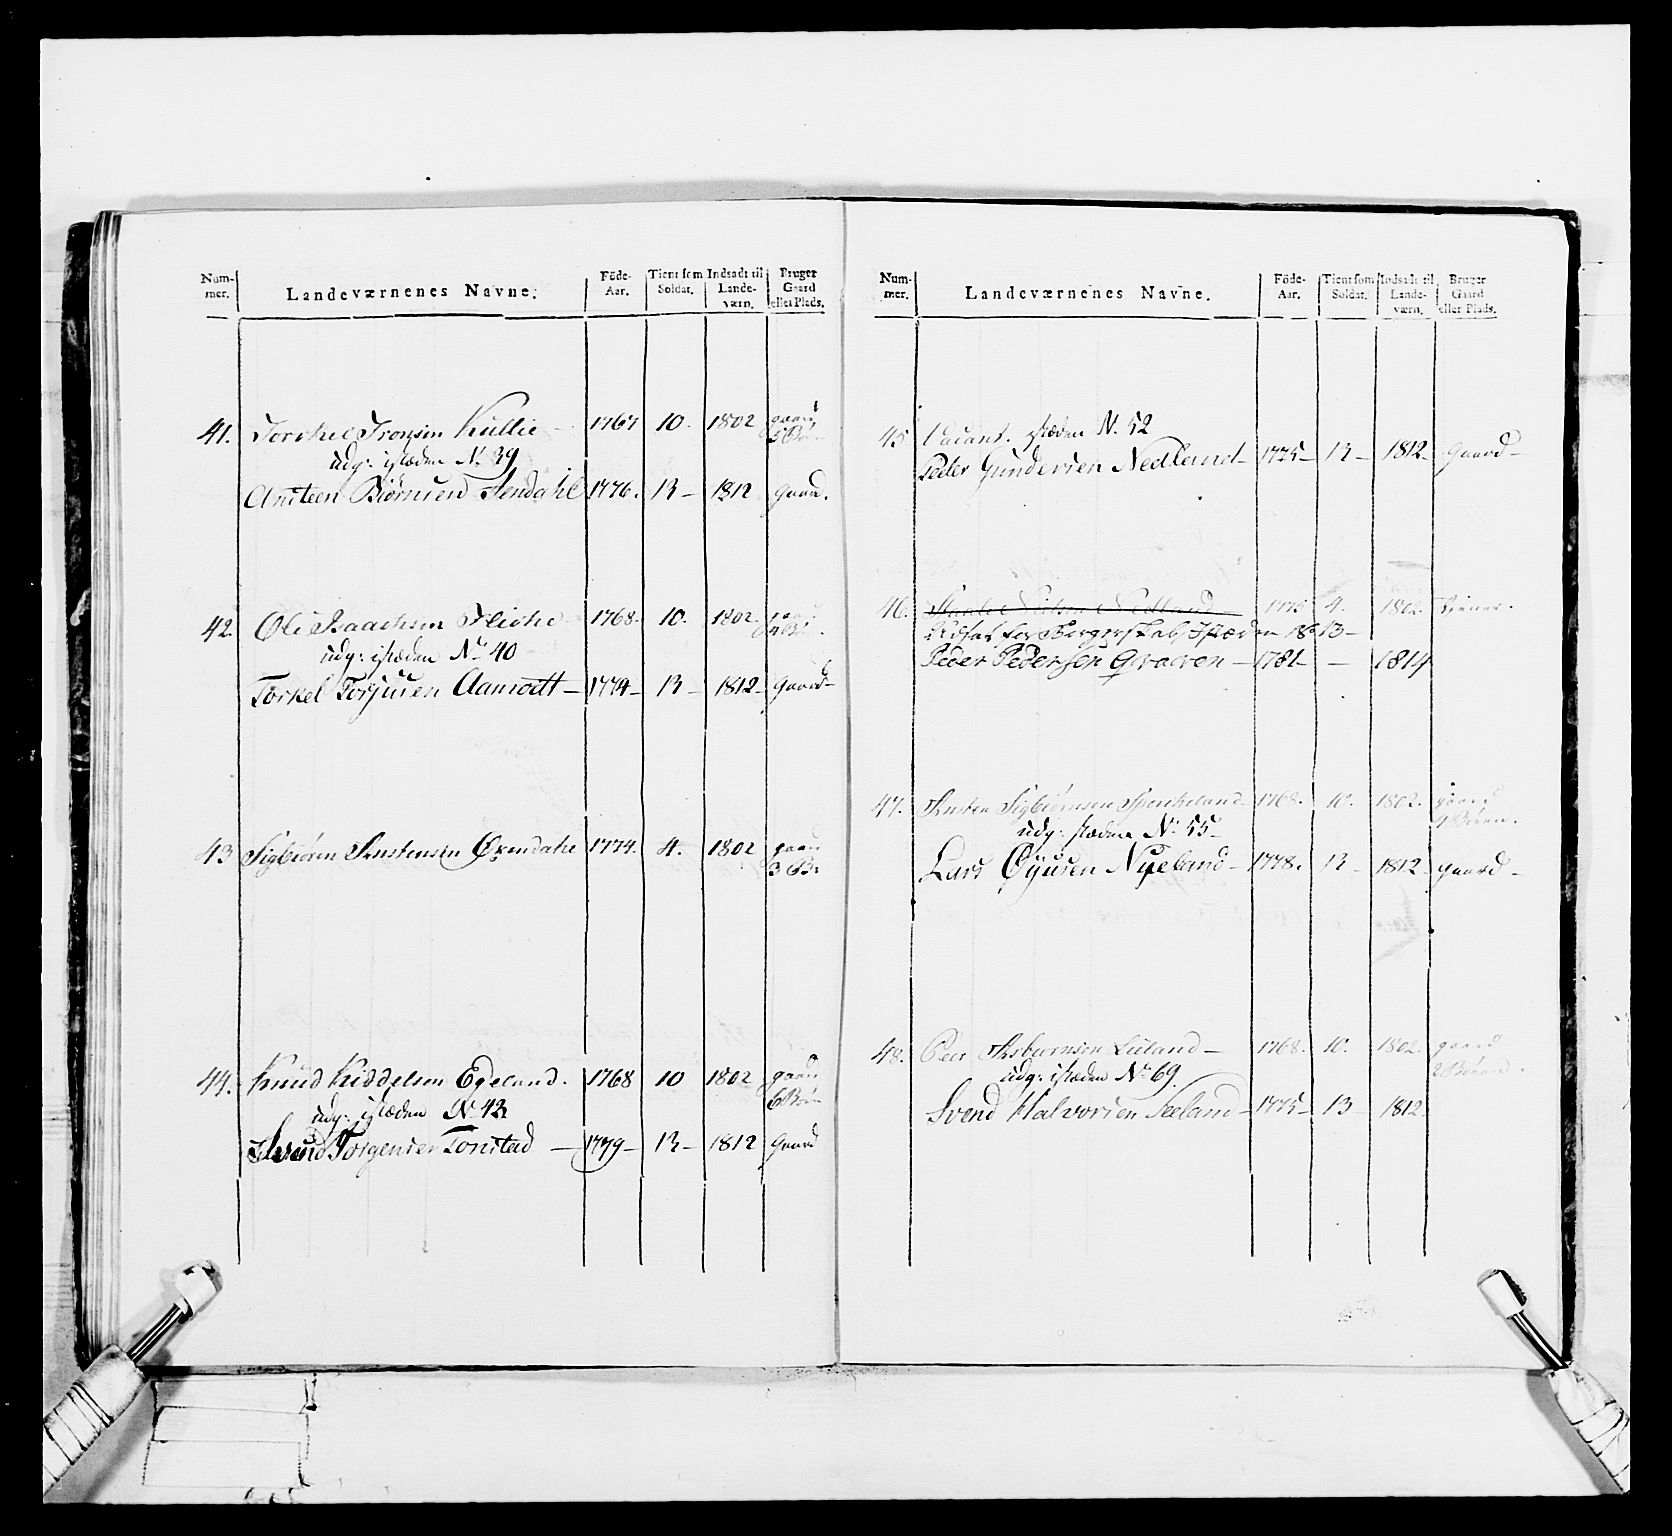 Num-
mer.
Landeværnenes Navne.
Föde-
Aar.
Tient som
Soldat.
Indsadt til
Lande-
værn.
Bruger
Gaard
eller Plads.
41. Torkel Tronsen Kullie - 1767 10. 1802 gaard
5 Bør
udg: istæden N. 39
Ansteen Biørnsen Sendahl 1776. 13 - 1812 gaard.
42. Ole Isaachsen 1768. 10. 1802. gaard
4 B.
udg: istæden No 40
Torkel Torjusen Aamodt - 1774 - 13 - 1812 - gaard -
43 Sigbiøren Arnstensen Øxendahl 1774. 4. 1802 gaard
3 Br
44. Knud Kiddelsen Egeland. 1768 10 1802 gaard
6 Bør
udg: istæden No 42
Torgensen Tonstad - 1779 - 13 - 1812 gaard
Num-
mer.
Landeværnenes Navne.
Föde-
Aar.
Tient som
Soldat.
Indsadt til
Lande-
værn.
Bruger
Gaard
eller Plads.
45 Vacant. istæden N. 52
Peder Gundersen Nedland - 1775 - 13 - 1812 - gaard -
46. Nilsen Nedland 1775 4. 1802. tiener.
Udsat for Borgerskab, Istæden 1813 -
Peder Pedersen Qvæven - 1781 - - 1814
47. Austen Sigbiørnsen Sporkeland - 1768. 10. 1802. gaard
4 Børen.
udg: istæden No 55 -
Lars Øysen Nyeland - 1778. 13 - 1812 - gaard -
48. Peer Asbiørnsen Lieland - 1768. 10. 1802. gaard
2 Børen.
udg: istæden No 69
Svend Halvorsen Seeland - 1775 - 13 - 1812